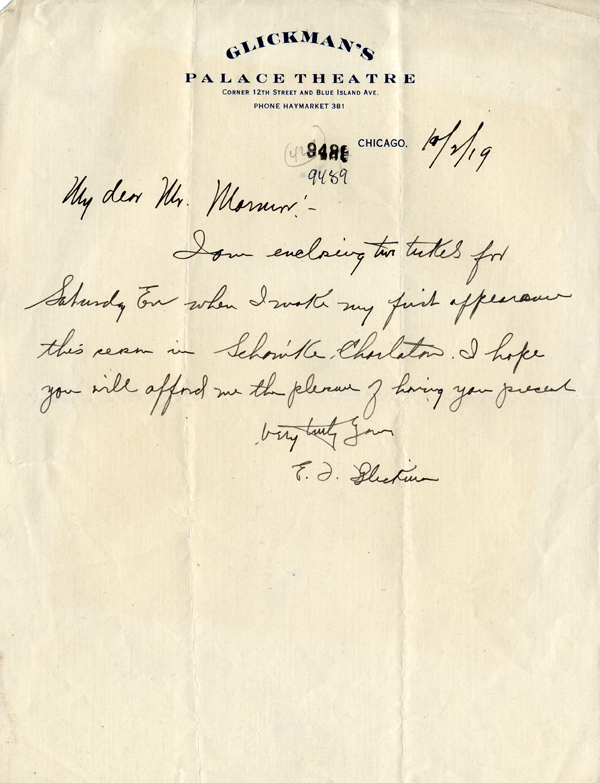 GLICKMAN'S
PALACE THEATRE
CORNER 12TH STREET AND BLUE ISLAND AVE.
PHONE HAYMARKET 381
CHICAGO. 10/2/19
9489
My dear Mr. :-
I am enclosing two tickets for
Saturday Eve when I make my first appearance
this season in Charlatan. I hope
you will afford me the pleasure of having you present
Very truly Yours
E. Glickman